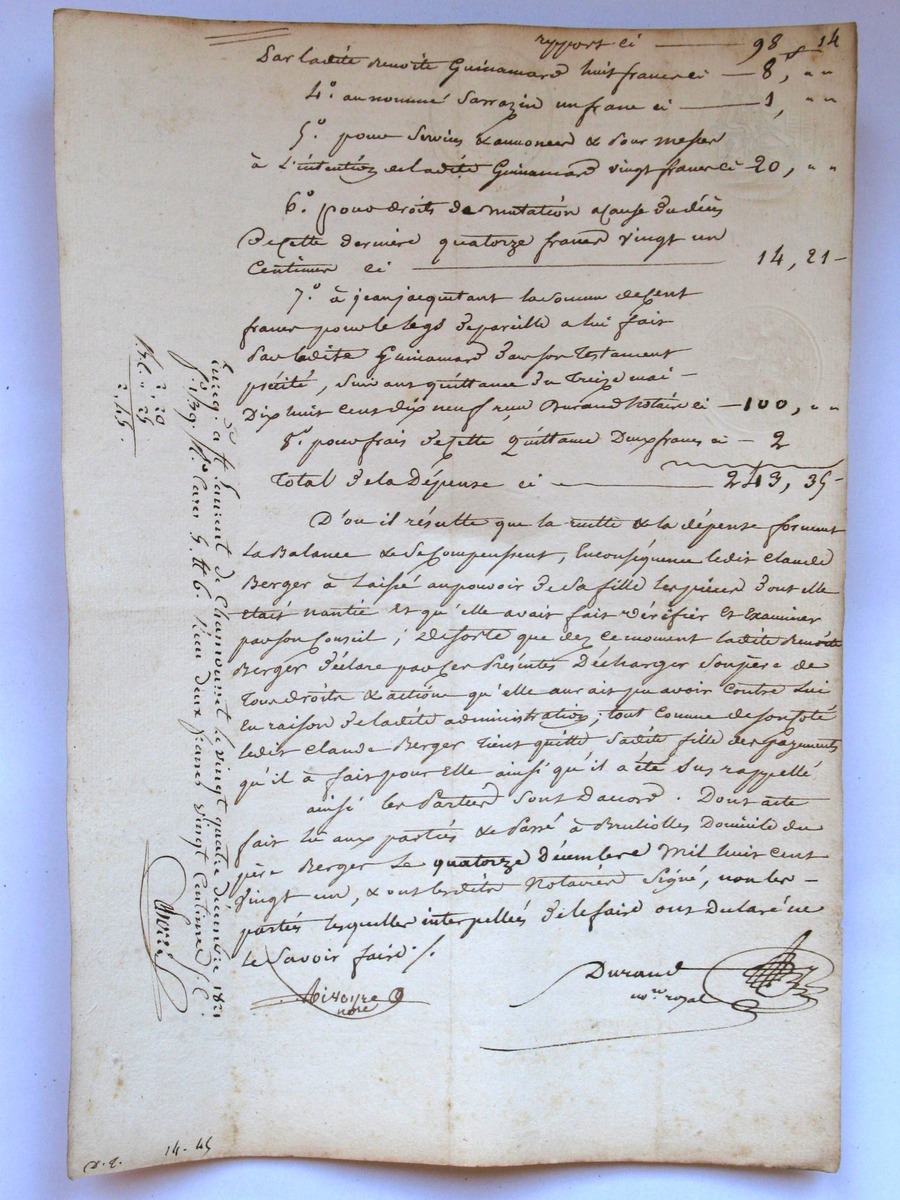 report ci 98 14
Par ladite Benoîte Guinamard huit francs ci 8, " "
4.° au nommé Sarrazin un franc ci 1, " "
5.° pour Services & aumones & pour messes
à L'intention de ladite Guinamard vingt francs ci 20, " "
6.° pour droits de mutation a cause du décès
de cette dernière quatorze francs vingt un
Centimes ci 14, 21
7.° à jean jacquitant la somme de Cent
francs pour le legs de pareille a lui fait
Par ladite Guinamard dans son Testament
précité, suivant quittance du Treize mai
Dix huit cent dix neuf reçu Durand Notaire ci 100, " "
8.° pour frais de cette Quittance Deux francs ci 2
Total de la Dépense ci 243, 35
D'ou il résulte que la recette & la dépense forment
La Balance & se Compensent, En conséquence ledit Claude
Berger à Laissé au pouvoir de sa fille les pièces dont elle
était nantie Et qu'elle avait fait vérifier Et Examiner
par son Conseil; de sorte que dez ce moment ladite Benoite
Berger déclare par ces Présentes Décharger son père de
Tous droits & actions qu'elle aurait pu avoir Contre Lui
En raison de ladite administration; tout comme de son coté
ledit Claude Berger tient quitte sadite fille des payements
qu'il à fait pour Elle ainsi qu'il a été sus rappellé
ainsi les Parties sont Daccord. Dont acte
fait lu aux parties & Passé à Brulioles Domicile du
père Berger Le quatorze Décembre Mil huit cent
vingt un, & ont lesdits Notaires Signé, non les
parties lesquelles interpellées de le faire ont Déclaré ne
Le Savoir faire ./.
Durand
no.re royal
nore
Enreg. à St Laurent de Chamousset le vingt quatre décembre 1821
f.o 139. R.o Cases 5. et 6. Reçu deux francs vingt Centimes
2, 20
25
2, 45
14-45